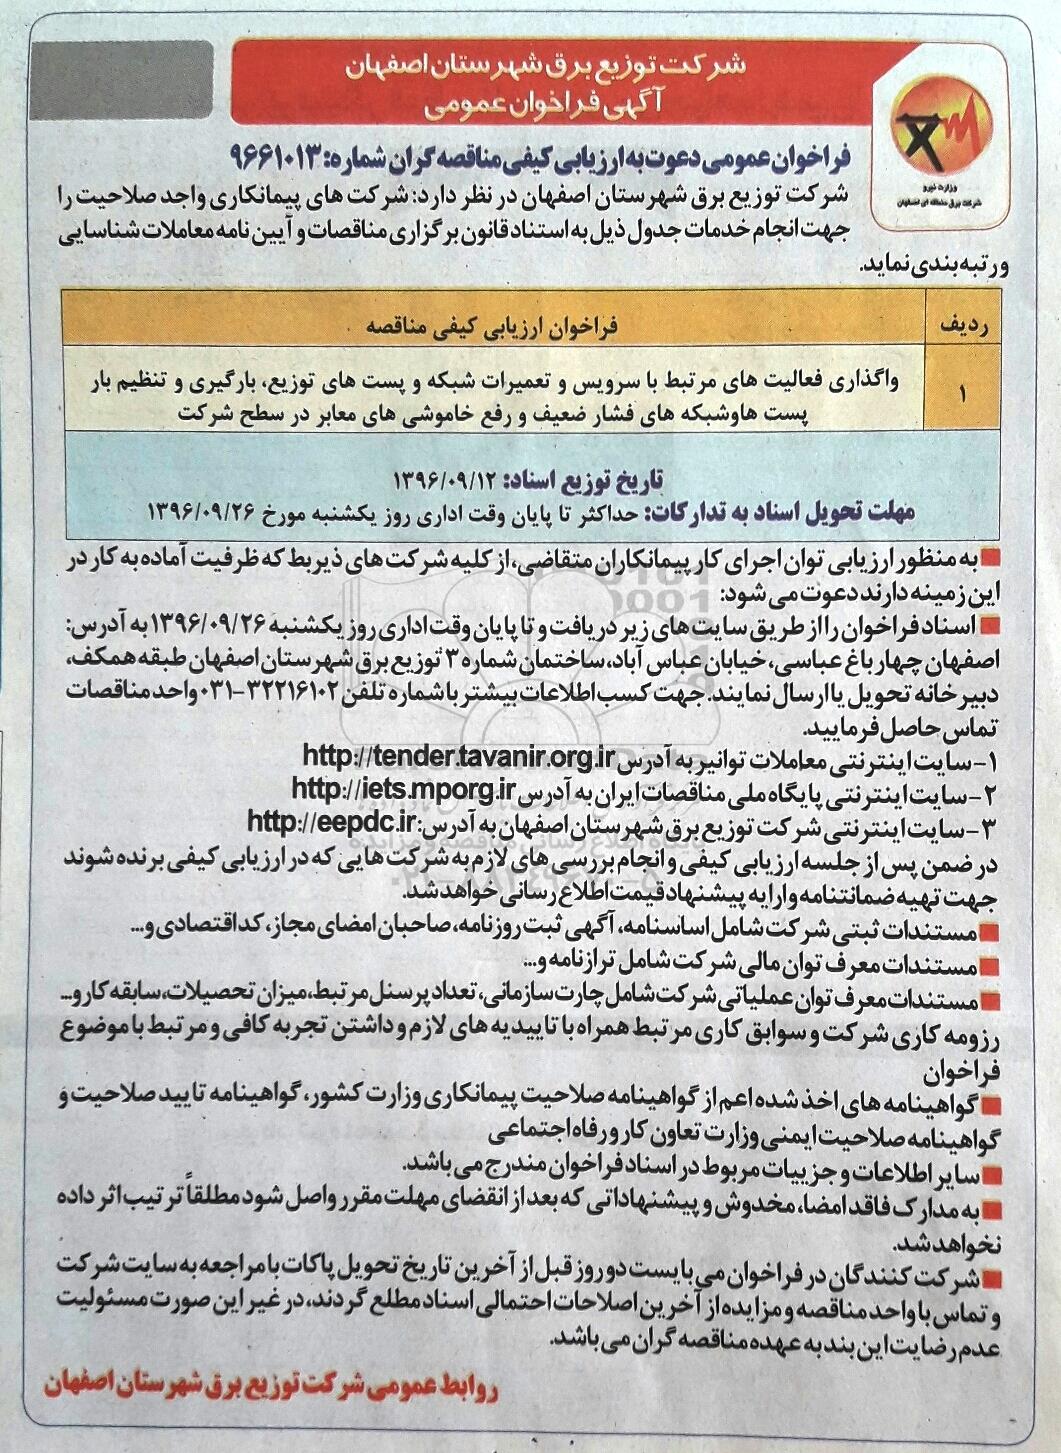 شرکت توزیع برق شهرستان اصفهان
آگهی فراخوان عمومی
وزارت نیرو
شرکت برق منطقه ای اصفهان
فراخوان عمومی دعوت به ارزیابی کیفی مناقصه گران شماره: ۹۶۶۱۰۱۳
شرکت توزیع برق شهرستان اصفهان در نظر دارد: شرکت های پیمانکاری واجد صلاحیت را
جهت انجام خدمات جدول ذیل به استناد قانون برگزاری مناقصات و آیین نامه معاملات شناسایی
و رتبه بندی نماید.
ردیف
فراخوان ارزیابی کیفی مناقصه
۱
واگذاری فعالیت های مرتبط با سرویس و تعمیرات شبکه و پست های توزیع، بارگیری و تنظیم بار
پست هاوشبکه های فشار ضعیف و رفع خاموشی های معابر در سطح شرکت
تاریخ توزیع اسناد: ۱۳۹۶/۰۹/۱۲
مهلت تحویل اسناد به تدارکات: حداکثر تا پایان وقت اداری روز یکشنبه مورخ ۱۳۹۶/۰۹/۲۶
به منظور ارزیابی توان اجرای کار پیمانکاران متقاضی، از کلیه شرکت های ذیربط که ظرفیت آماده به کار در
این زمینه دارند دعوت می شود:
اسناد فراخوان را از طریق سایت های زیر دریافت و تا پایان وقت اداری روز یکشنبه ۱۳۹۶/۰۹/۲۶ به آدرس:
اصفهان چهارباغ عباسی، خیابان عباس آباد، ساختمان شماره ۳ توزیع برق شهرستان اصفهان طبقه همکف،
دبیرخانه تحویل یا ارسال نمایند. جهت کسب اطلاعات بیشتر با شماره تلفن ۳۲۲۱۶۱۰۲-۰۳۱ واحد مناقصات
تماس حاصل فرمایید.
۱-سایت اینترنتی معاملات توانیر به آدرس http://tender.tavanir.org.ir
۲-سایت اینترنتی پایگاه ملی مناقصات ایران به آدرس http://iets.mporg.ir
۳-سایت اینترنتی شرکت توزیع برق شهرستان اصفهان به آدرس: http://eepdc.ir
در ضمن پس از جلسه ارزیابی کیفی و انجام بررسی های لازم به شرکت هایی که در ارزیابی کیفی برنده شوند
جهت تهیه ضمانتنامه و ارایه پیشنهاد قیمت اطلاع رسانی خواهد شد.
مستندات ثبتی شرکت شامل اساسنامه، آگهی ثبت روزنامه، صاحبان امضای مجاز، کد اقتصادی و...
مستندات معرف توان مالی شرکت شامل ترازنامه و...
مستندات معرف توان عملیاتی شرکت شامل چارت سازمانی، تعداد پرسنل مرتبط، میزان تحصیلات، سابقه کار و...
رزومه کاری شرکت و سوابق کاری مرتبط همراه با تاییدیه های لازم و داشتن تجربه کافی و مرتبط با موضوع
فراخوان
گواهینامه های اخذ شده اعم از گواهینامه صلاحیت پیمانکاری وزارت کشور، گواهینامه تایید صلاحیت و
گواهینامه صلاحیت ایمنی وزارت تعاون کار و رفاه اجتماعی
سایر اطلاعات و جزییات مربوط در اسناد فراخوان مندرج می باشد.
به مدارک فاقد امضا، مخدوش و پیشنهاداتی که بعد از انقضای مهلت مقرر واصل شود مطلقاً ترتیب اثر داده
نخواهد شد.
شرکت کنندگان در فراخوان می بایست دو روز قبل از آخرین تاریخ تحویل پاکات با مراجعه به سایت شرکت
و تماس با واحد مناقصه و مزایده از آخرین اصلاحات احتمالی اسناد مطلع گردند، در غیر این صورت مسئولیت
عدم رضایت این بند به عهده مناقصه گران می باشد.
روابط عمومی شرکت توزیع برق شهرستان اصفهان